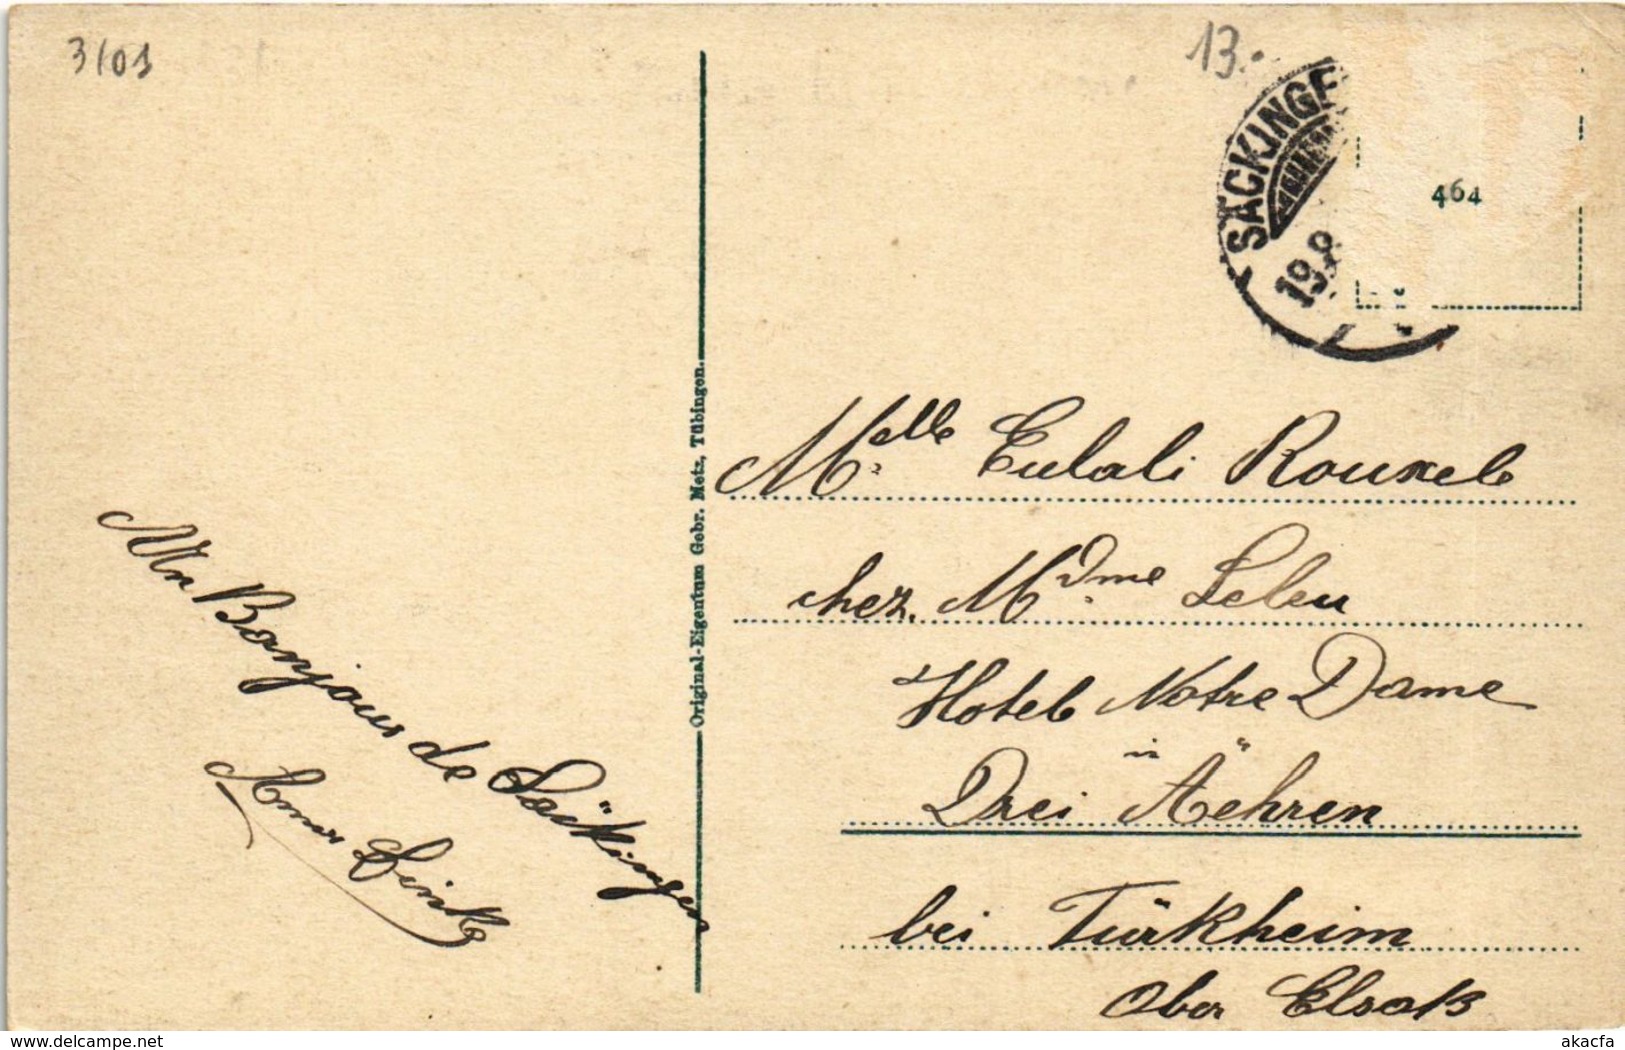 3/01
13.-
SÄCKINGE
19.8
464
Original-Eigentum Gebr. Metz, Tübingen.
Melle Eulali Rouxel
chez. Mdme Leleu
Hotel Notre Dame
in
Drei Äehren
bei Türkheim
Ober Elsaß
Un Bonjour de Säckingen
Fink
www.delcampe.net
akacfa